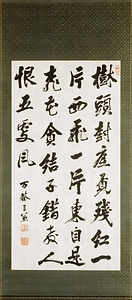 樹頭樹底覓殘紅一
片西飛一片東自是
桃花貪結子錯教人
恨五更風